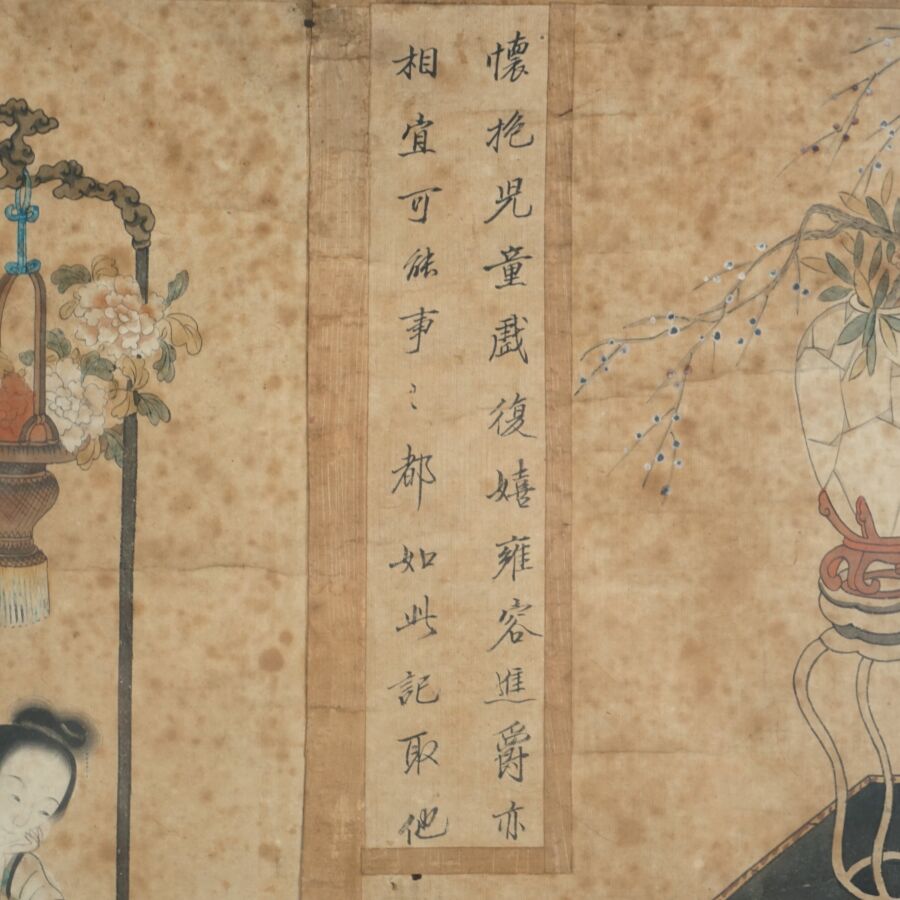 懷抱児童戲復嬉雍容進爵亦
相宜可能事〻都如此記取他